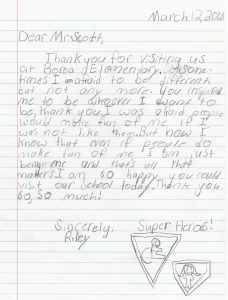 March 12, 2018
Dear Mr Scott,
Thank you for visiting us
at Elementary. Some-
times I afraid to be different
but not any more. You inspired
me to be whoever I want to
be, thank you. I was afraid people
would make fun of me if I
was not like them. But now I
know that even if people do
make fun of me I am just
being me and that's all that
matters. I am so happy you could
visit our school today. Thank you
so, so much!
Sincerely, Super Heros!
Riley